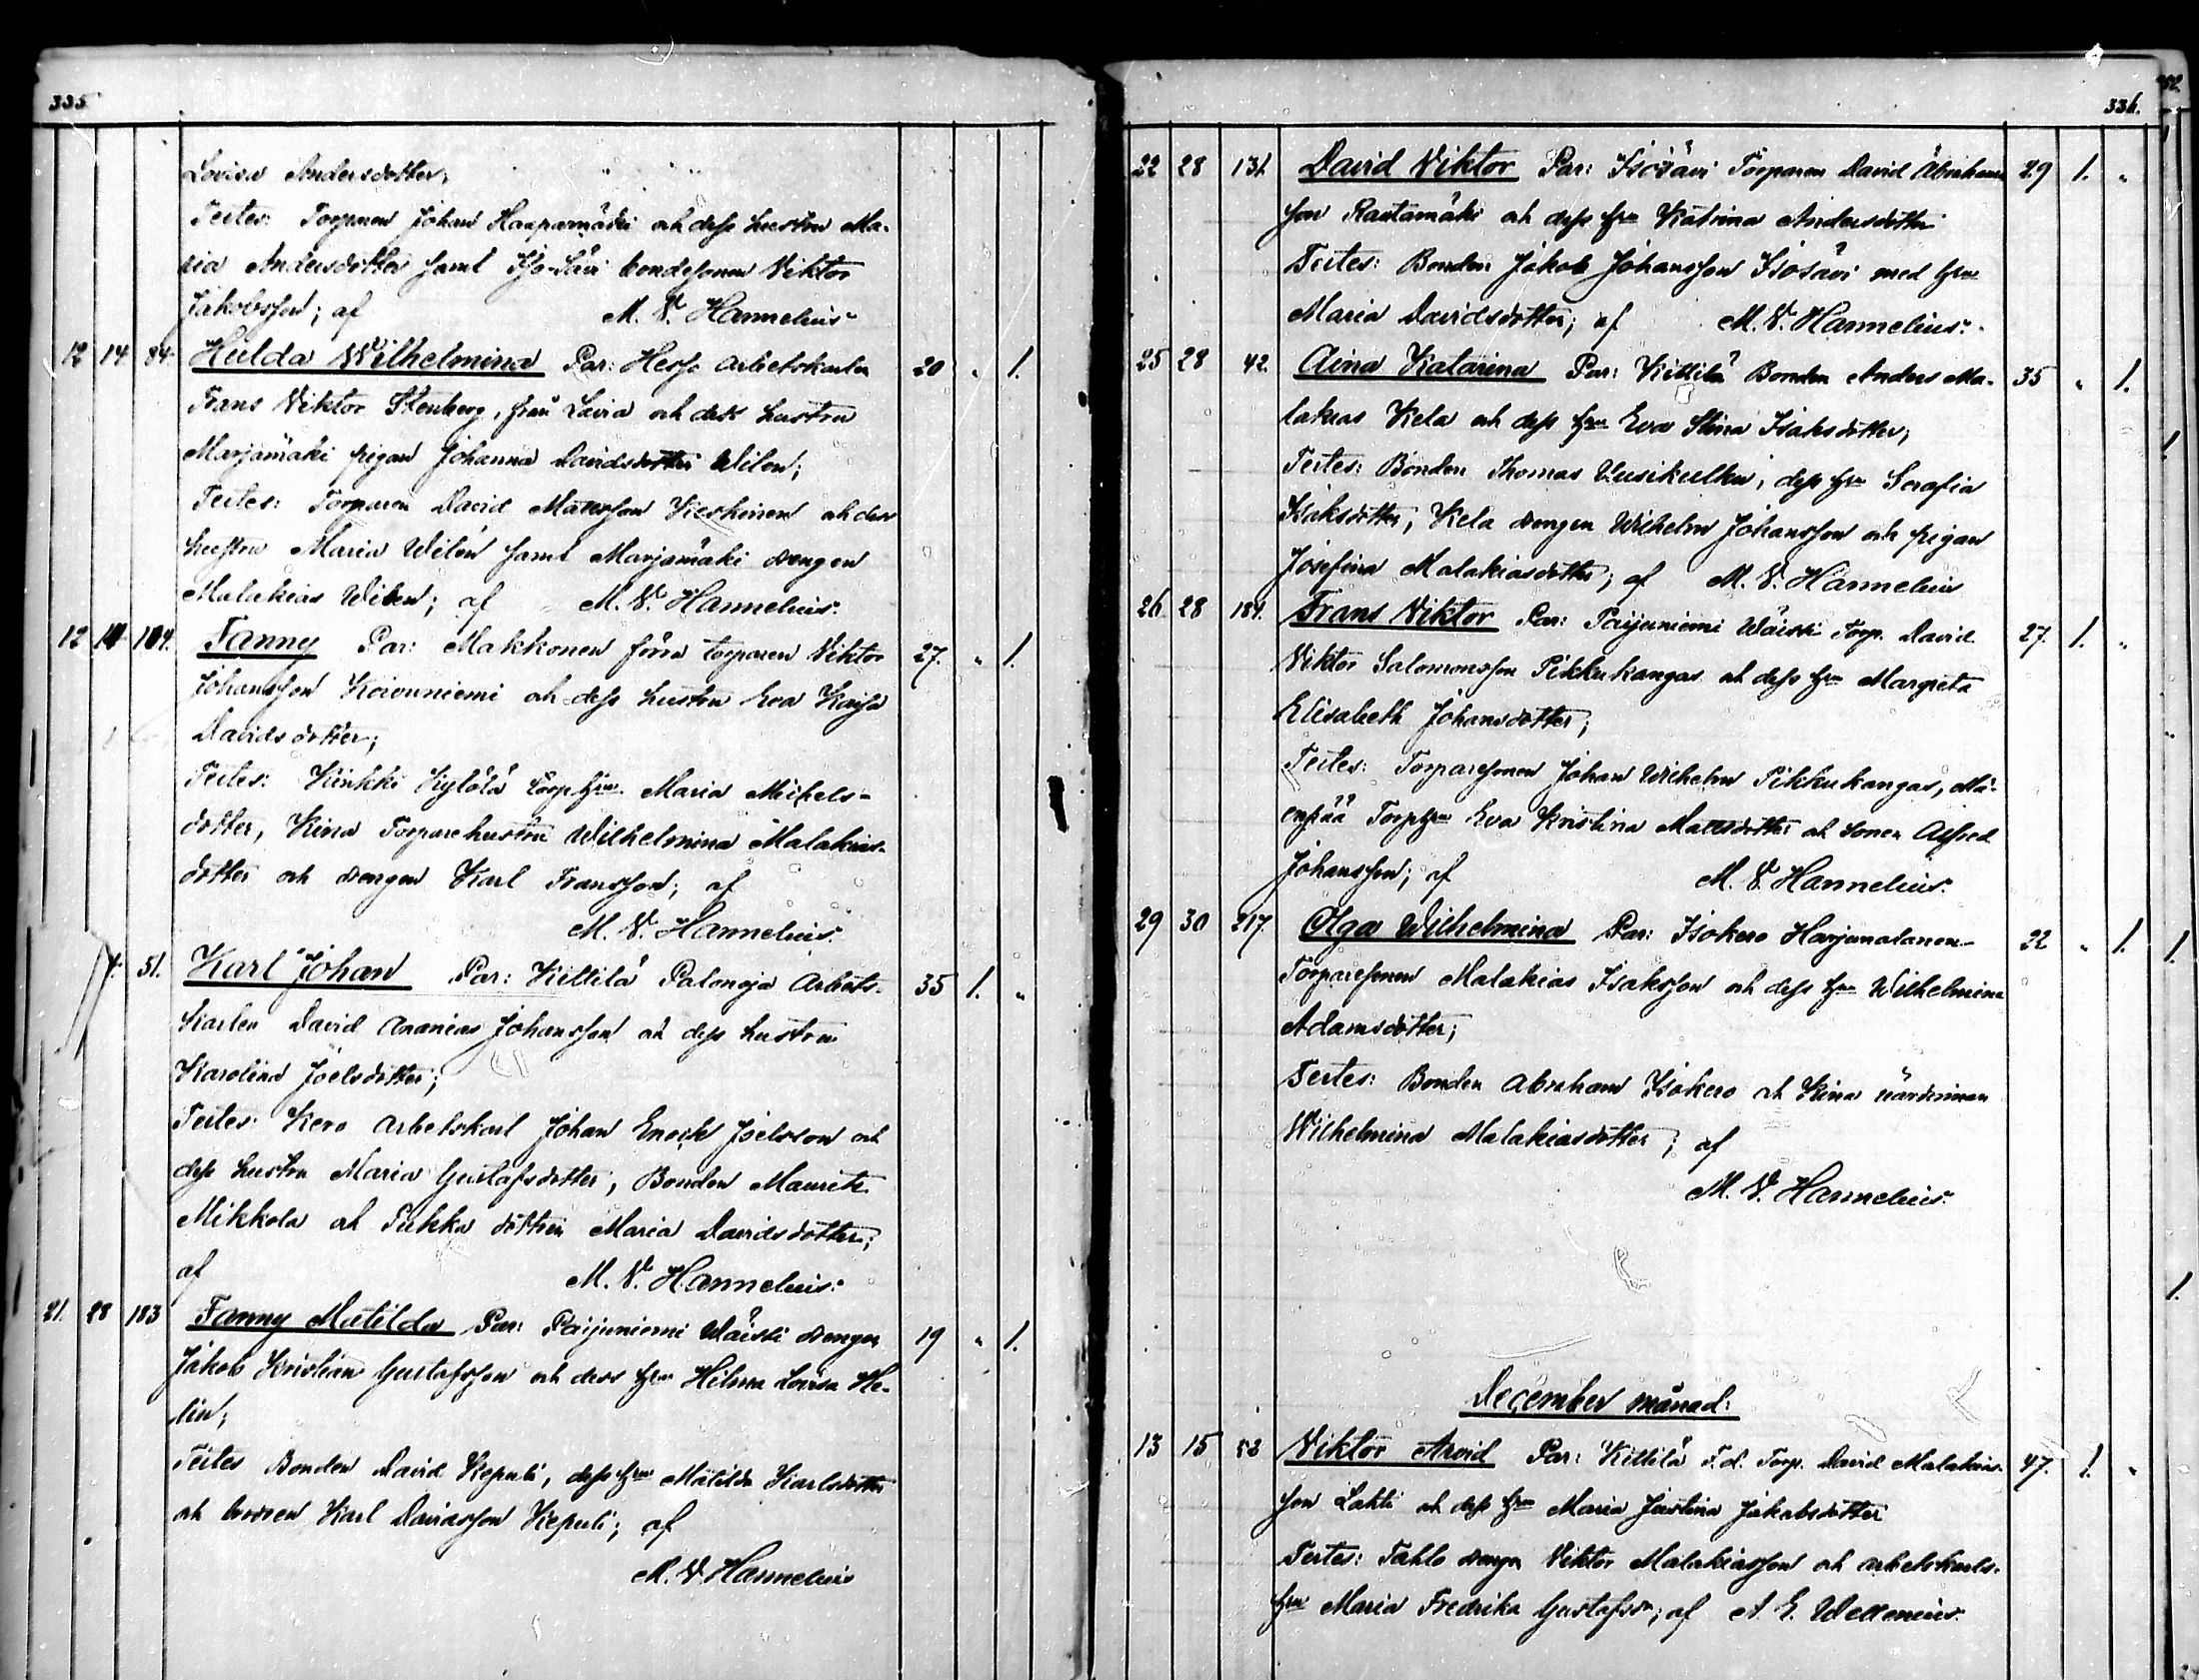 335
Lovisa Andersdotter;
Testes: Torparen Johan Haapamäki och dess hustru Ma-
ria Andersdotter samt Iso-Sävi bondesonen Viktor
Jakobsson; af M. V. Hannelius
12 14 84. Hulda Wilhelmina Par: Hesse arbetskarlen 20 " 1.
Frans Viktor Stenberg, från Lavia och dess hustru
Marjamäki pigan Johanna Davidsdotter Wilen;
Testes: Torparen David Matsson Keskinen och dess
hustru Maria Wilén samt Marjamäki drengen
Malakias Wilen; af M. V. Hannelius.
12 14 104. Fanny Par: Makkonen förra torparen Viktor 27. " 1.
Johansson Koivuniemi och dess hustru Eva Kajsa
Davidsdotter;
Testes: Kinkki Kylölä torp.hru Maria Michels-
dotter, Kina Torparehustru Wilhelmina Malakias-
dotter och drengen Karl Fransson; af
M. V. Hannelius.
51. Karl Johan Par: Kittilä Palonoja Arbets- 35 1. "
karlen David Ananias Johansson och dess hustru
Karolina Joelsdotter;
Testes: Kero arbetskarl Johan Enoch Joelsson och
dess hustru Maria Gustafsdotter, Bonden Maurits
Mikkola och Pukka dottren Maria Davidsdotter;
af M. V. Hannelius.
21. 28 183 Fanny Matilda Par: Paijuniemi Wäisti drengen 19 " 1.
Jakob Kristian Gustafsson och dess hru Hilma Lovisa He-
lin;
Testes Bonden David Kepuli, dess hru Matilda Karlsdotter
och brodren Karl Davidsson Kepuli; af
M. V. Hannelius
336.
22 28 131. David Viktor Par: Isosävi Torparen David Abraham 29 1. "
son Rautamäki och dess hru Katrina Andersdotter
Testes: Bonden Jakob Johansson Isosävi med hru
Maria Davidsdotter; af M. V. Hannelius.
25 28 42. Aina Katarina Par: Kittilä Bonden Anders Ma- 35 " 1.
lakias Kela och dess hru Eva Stina Isaksdotter;
Testes: Bonden Thomas Uusikulku, dess hru Serafia
Isaksdotter, Kela drengen Wilhelm Johansson och pigan
Josefina Malakiasdotter; af M. V. Hannelius
26 28 184. Frans Viktor Par: Paijuniemi Wäisti Torp. David 27. 1. "
Viktor Salomonsson Pikkukangas och dess hru Margreta
Elisabeth Johansdotter;
Testes: Torparesonen Johan Wilhelm Pikkukangas, Mä-
enpää Torphru Eva Kristina Matsdotter och sonen Alfred
Johansson; af M. V. Hannelius.
29 30 217. Olga Wilhelmina Par: Isokero Harjunalanen 22 " 1.
Torparesonen Malakias Isaksson och dess hru Wilhelmina
Adamsdotter;
Testes: Bonden Abraham Isokero och Kina värdinnan
Wilhelmina Malakiasdotter; af
M. V. Hannelius.
December månad:
13 15 52 Viktor Arvid Par: Kittilä F.d. Torp. David Malakias- 47. 1. "
son Lahti och dess hru Maria Justina Jakobsdotter
Testes: Tahlo drengen Viktor Malakiasson och arbetskarls-
hru Maria Fredrika Gustafsdr; af A. E. Wellenius.